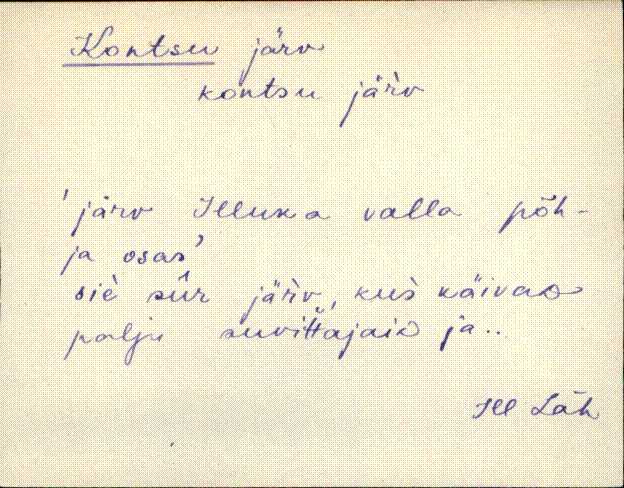 Kontsu järv
kontsu jär̀v
'järv Illuka valla põh-
ja osas'
siè sûr jär̀v, kus̀ käivad
palju suvittajaid ja..
Ill Läh